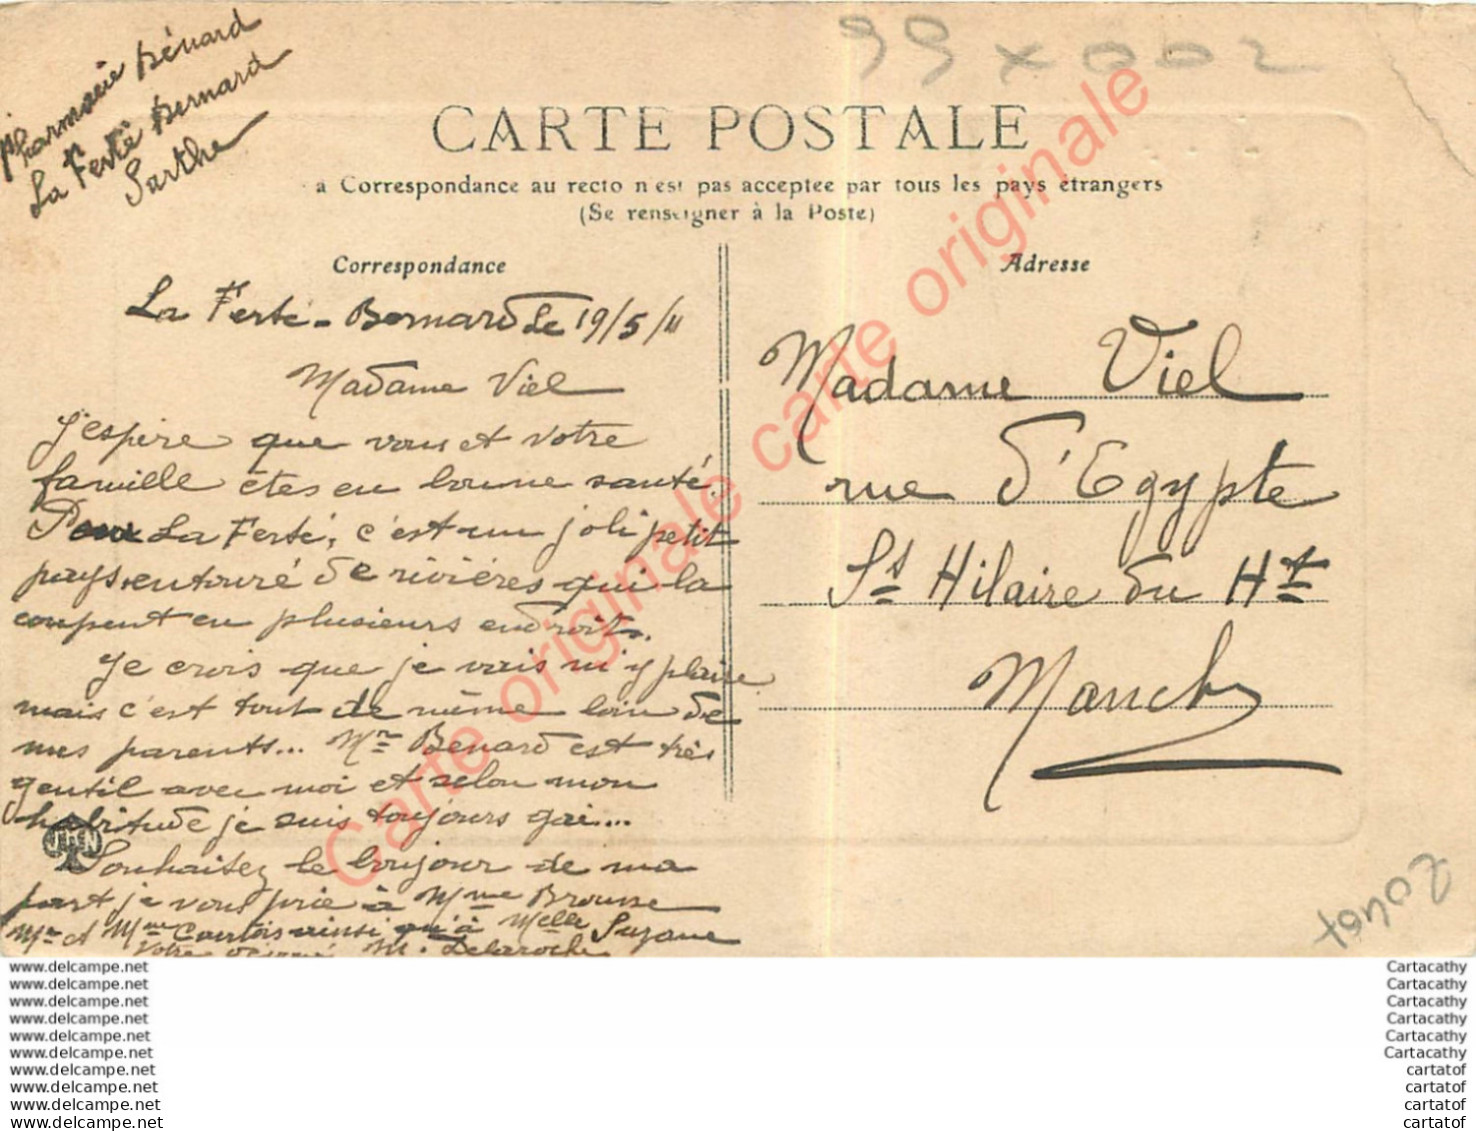 Pharmacie Bénard
La Ferté Bernard
Sarthe
99 x 002
CARTE POSTALE
a Correspondance au recto n'est pas acceptee par tous les pays étrangers
(Se renseigner à la Poste)
Correspondance
La Ferté-Bernard le 19/5/11
Madame Viel
J'espère que vous et votre
famille êtes en bonne santé.
Pour La Ferté, c'est un joli petit
pays entouré de rivières qui la
coupent en plusieurs endroits.
Je crois que je vais m'y plaire
mais c'est tout de même loin de
mes parents... Mr Benard est très
gentil avec moi et selon mon
habitude je suis toujours gai...
Souhaitez le bonjour de ma
part je vous prie à Mme Brousse
Mr et Mme Courtois ainsi qu'à Melle Suzane
Votre M. Delaroche
JMN
Adresse
Madame Viel
rue d'Egypte
St Hilaire du Ht
Manche
Carte originale carte originale
www.delcampe.net
www.delcampe.net
www.delcampe.net
www.delcampe.net
www.delcampe.net
www.delcampe.net
www.delcampe.net
www.delcampe.net
www.delcampe.net
www.delcampe.net
Cartacathy
Cartacathy
Cartacathy
Cartacathy
Cartacathy
Cartacathy
cartatof
cartatof
cartatof
cartatof